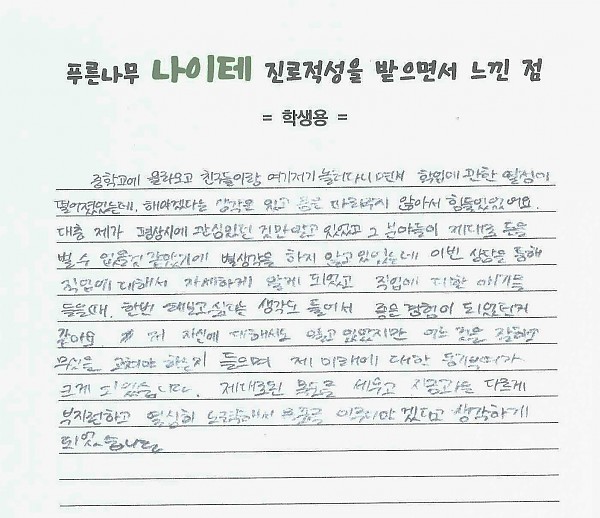 푸른나무 나이테 진로적성을 받으면서 느낀 점
= 학생용 =
중학교에 올라오고 친구들이랑 여기저기 놀러다니면서 학업에 관한 열정이
떨어졌었는데. 해야겠다는 생각은 있고 몸은 따라주지 않아서 힘들었었어요.
대충 제가 평상시에 관심있던 것만 알고 있었고 그 분야들이 제대로 돈을
벌 수 없을것 같았기에 별생각을 하지 않고 있었는데 이번 상담을 통해
직업에 대해서 자세하게 알게 되었고 직업에 대한 얘기를
들을때, 한번 해보고싶다는 생각도 들어서 좋은 경험이 되었던거
같아요. 저 자신에 대해서도 알고 있었지만 어느 것을 잘하고
무엇을 고쳐야 하는지 들으며 제 미래에 대한 동기부여가
크게 되었습니다. 제대로된 목표를 세우고 지금과는 다르게
부지런하고 열심히 노력해서 목표를 이루어야 겠다고 생각하게
되었습니다.